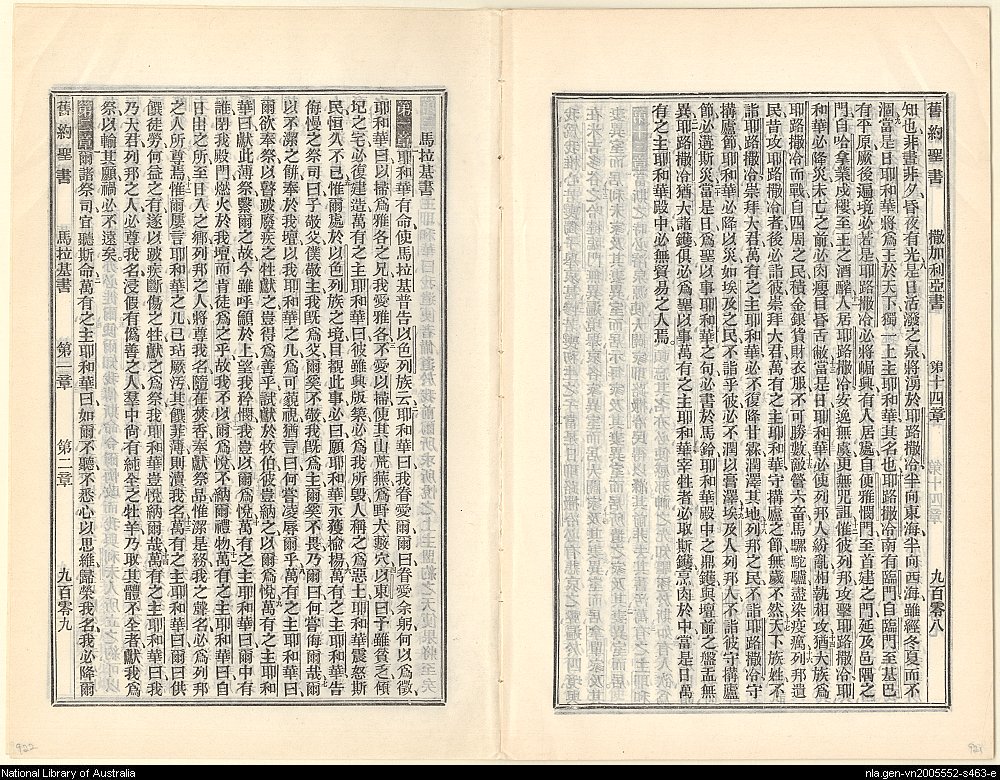 舊約聖書 撒加利亞書 第十四章 九百零八
知也非晝非夕昏夜有光是日活潑之泉將湧於耶路撒冷半向東海半向西海雖經冬夏而不
涸當是日耶和華將爲王於天下獨一上主耶和華其名也耶路撒冷南有臨門自臨門至基巴
有平原厥後遍境必若是耶路撒冷必將崛興有人居處自便雅憫門至首建之門延及邑隅之
門自哈拿業戍樓至王之酒醡人居耶路撒冷安逸無虞更無咒詛惟彼列邦攻擊耶路撒冷耶
和華必降災未亡之前必肉瘦目昏舌敝當是日耶和華必使列邦人紛亂相執相攻猶大族爲
耶路撒冷而戰自四周之民積金銀貨財衣服不可勝數敵營六畜馬騾駝驢盡染疫癘列邦遺
民昔攻耶路撒冷者後必詣彼崇拜大君萬有之主耶和華守搆廬之節無歲不然天下族姓不
詣耶路撒冷崇拜大君萬有之主耶和華必不復降甘霖潤澤其地列邦之民不詣耶路撒冷守
搆廬節耶和華必降以災如埃及之民不詣乎彼必不潤以膏澤埃及人列邦人不詣彼守搆廬
節必遘斯災當是日爲聖以事耶和華之句必書於馬鈴耶和華殿中之鼎鑊與壇前之盤盂無
異耶路撒冷猶大諸鑊俱必爲聖以事萬有之主耶和華宰牲者必取斯鑊烹肉於中當是日萬
有之主耶和華殿中必無貿易之人焉
馬拉基書
第一章 耶和華有命使馬拉基普告以色列族云耶和華曰我眷愛爾爾曰眷愛余躬何以爲徵
耶和華曰以掃爲雅各之兄我愛雅各不愛以掃使其山荒蕪爲野犬藪穴以東曰予雖貧乏傾
圮之宅必復建造萬有之主耶和華曰彼雖興版築爲我所毀人稱之爲惡土耶和華震怒斯
民恒久不已惟爾處於以色列族之境目覩此事必曰願耶和華永獲揄揚萬有之主耶和華告
侮慢之祭司曰子敬父僕敬主我旣爲父爾奚不敬我旣爲主爾奚不畏乃爾曰何嘗侮哉爾
以不潔之餅奉於我壇以我耶和華之几爲可藐視猶言曰何嘗凌辱爾乎萬有之主耶和華曰
爾欲奉祭以瞽跛癈疾之牲獻之豈得爲善乎試獻於牧伯彼豈納之以爾爲悅萬有之主耶和
華曰獻此薄祭繄爾之故今雖呼籲於上望我矜憫我豈以爾爲悅萬有之主耶和華曰爾中有
誰閉我殿門燃火於我壇而肯徒爲之乎故我不以爾爲悅不納爾禮物萬有之主耶和華曰自
日出之所至日入之鄉列邦之人將尊我名隨在爇香奉獻祭品惟潔是務我之聲名必爲列邦
之人所尊焉惟爾屢言耶和華之几已玷厥污其饌菲薄則瀆我名萬有之主耶和華曰爾曰供
饌徒勞何益之有遂以跛疾斷傷之牲獻之爲祭我耶和華豈悅納爾哉萬有之主耶和華曰我
乃大君列邦之人必尊我名浸假有僞善之人羣中尙有純全之牡羊乃取其體不全者獻我爲
祭以輸其願禍必不遠矣
第二章 爾諸祭司宜聽斯命萬有之主耶和華曰如爾不聽不悉心以思維歸榮我名我必降爾
舊約聖書 馬拉基書 第一章 第二章 九百零九
922
921
National Library of Australia
nla.gen-vn2005552-s463-e